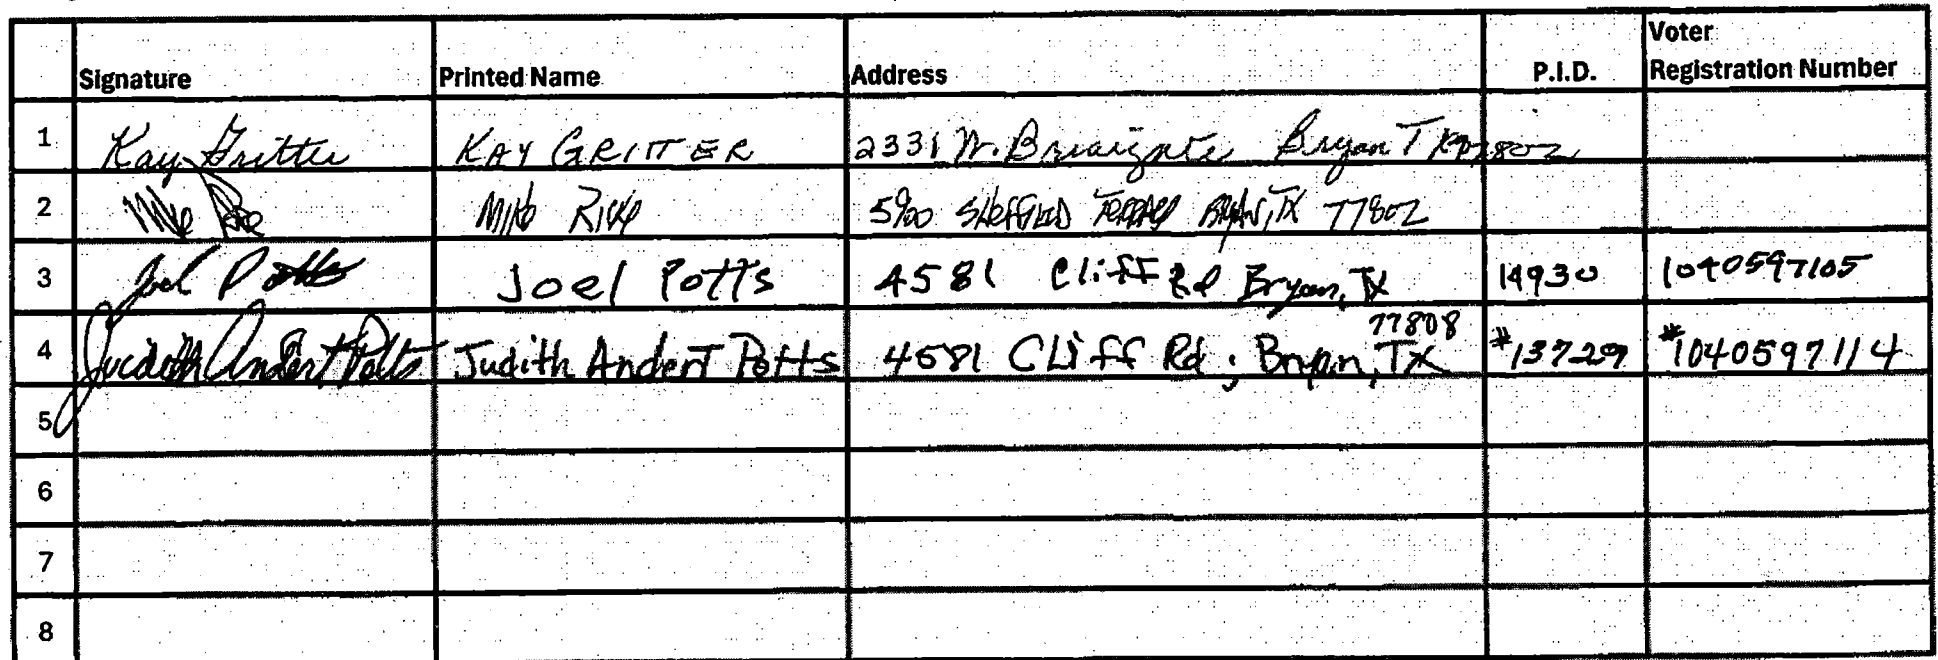 Signature Printed Name Address P.I.D. Voter Registration Number
1 Kay Gritter KAY GRITTER 2331 W. Briargate Bryan TX 77802
2 Mike 5900 SHEFFIELD TERRACE BRYAN, TX 77802
3 Joel Potts Joel Potts 4581 Cliff Rd Bryan, TX 14930 1040597105
4 Judith Andert Potts Judith Andert Potts 4581 Cliff Rd; Bryan, TX 77808 #13729 #1040597114
5
6
7
8